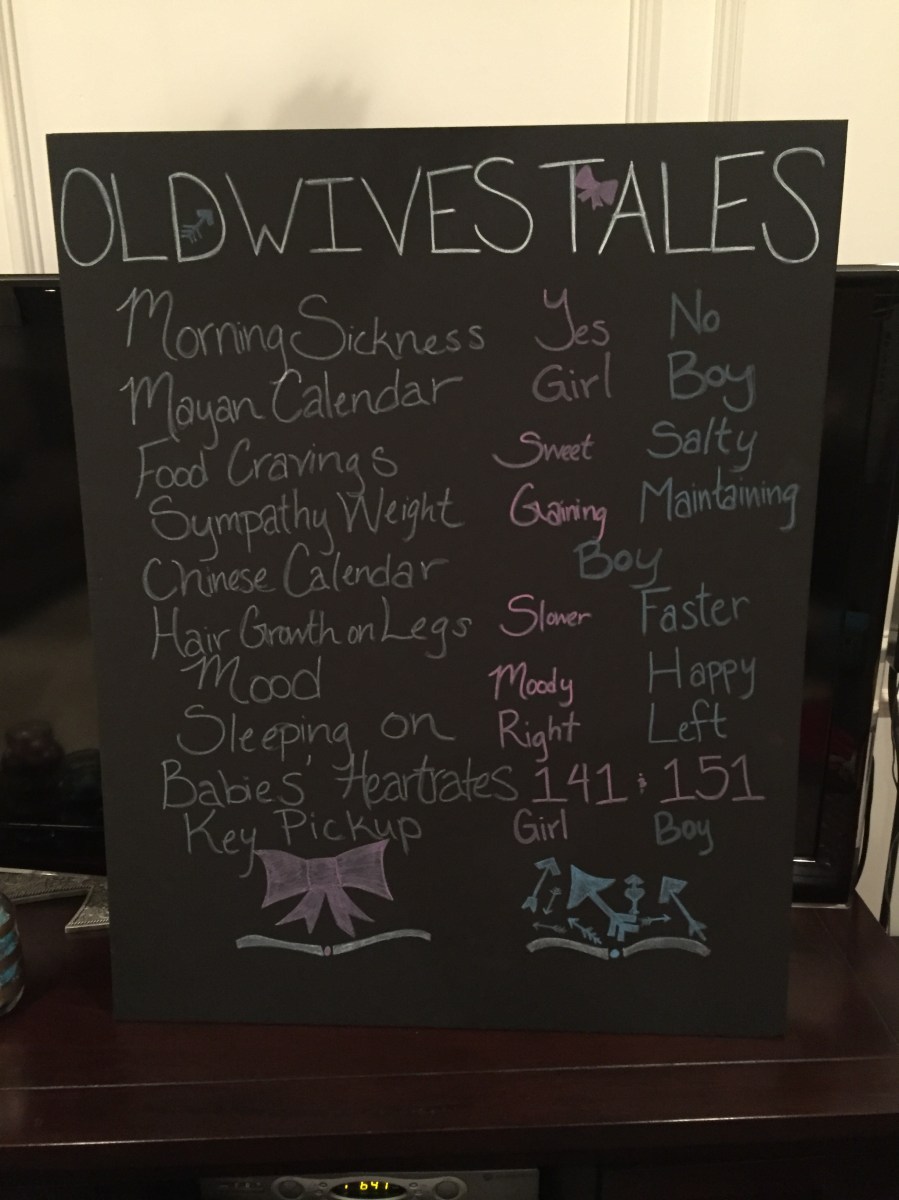 OLD WIVES TALES
Morning Sickness Yes No
Mayan Calendar Girl Boy
Food Cravings Sweet Salty
Sympathy Weight Gaining Maintaining
Chinese Calendar Boy
Hair Growth on Legs Slower Faster
Mood Moody Happy
Sleeping on Right Left
Babies' Heartrates 141 & 151
Key Pickup Girl Boy